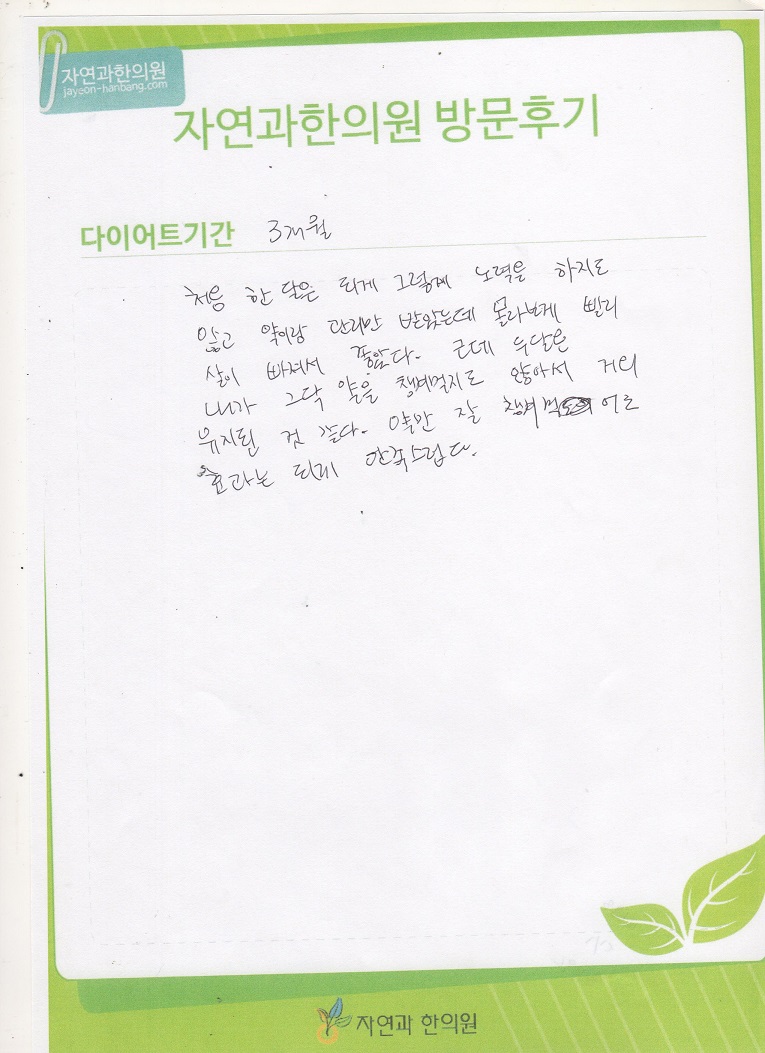 자연과한의원
jayeon-hanbang.com
자연과한의원 방문후기
다이어트기간 3개월
처음 한 달은 되게 그렇게 노력을 하지도
않고 약이랑 관리만 받았는데 몰라보게 빨리
살이 빠져서 좋았다. 근데 두달은
내가 그닥 약을 챙겨먹지도 않아서 거의
유지된 것 같다. 약만 잘 챙겨먹 어도
효과는 되게 만족스럽다.
자연과 한의원